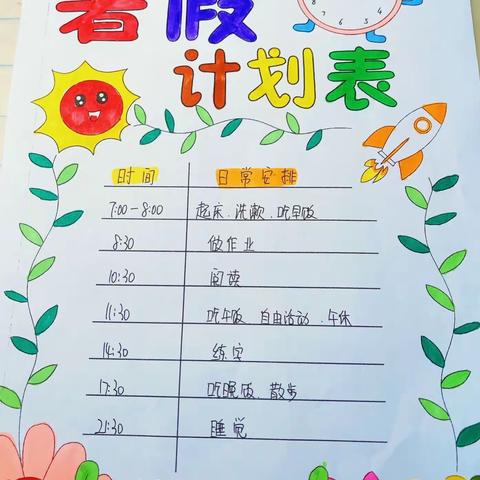 暑假
8 7 6 5
计划表
时间 日常安排
7:00-8:00 起床、洗漱、吃早饭
8:30 做作业
10:30 阅读
11:30 吃午饭、自由活动、午休
14:30 练字
17:30 吃晚饭、散步
21:30 睡觉